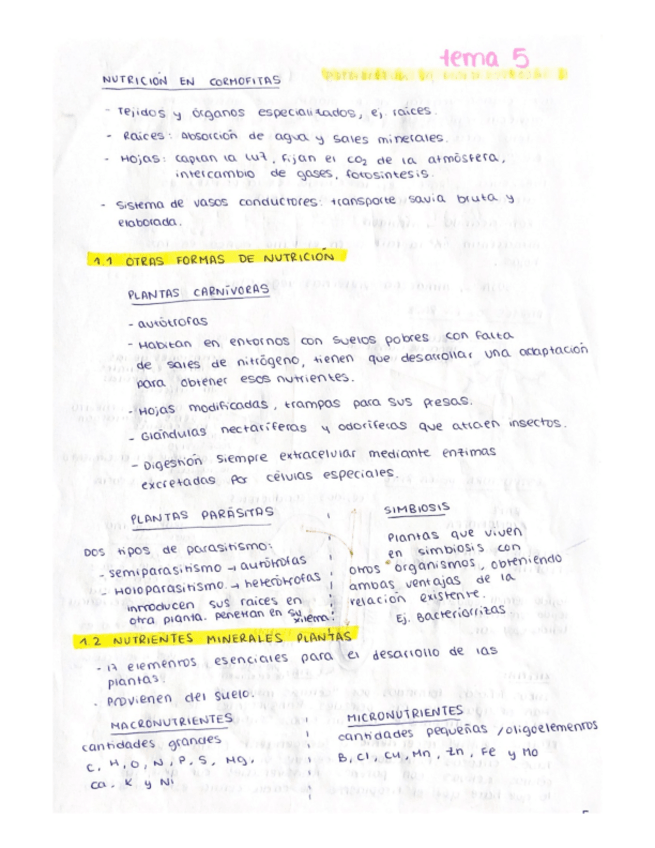 tema 5
NUTRICIÓN EN CORMOFITAS
- Tejidos y órganos especializados, ej. raíces.
- Raíces: Absorción de agua y sales minerales.
- Hojas: captan la luz, fijan el CO₂ de la atmósfera,
intercambio de gases, fotosíntesis.
- Sistema de vasos conductores: transporte savia bruta y
elaborada.
1.1 OTRAS FORMAS DE NUTRICIÓN
PLANTAS CARNÍVORAS
- autótrofas
- Habitan en entornos con suelos pobres con falta
de sales de nitrógeno, tienen que desarrollar una adaptación
para obtener esos nutrientes.
- Hojas modificadas, trampas para sus presas.
- Glándulas nectaríferas y odoríferas que atraen insectos.
- Digestión siempre extracelular mediante enzimas
excretadas por células especiales.
PLANTAS PARÁSITAS
Dos tipos de parasitismo:
- semiparasitismo → autótrofas
- Holoparasitismo → heterótrofas
introducen sus raíces en
otra planta. penetran en su xilema.
SIMBIOSIS
Plantas que viven
en simbiosis con
otros organismos, obteniendo
ambas ventajas de la
relación existente.
Ej. Bacteriorrizas.
1.2 NUTRIENTES MINERALES PLANTAS
- 17 elementos esenciales para el desarrollo de las
plantas.
- Provienen del suelo.
MACRONUTRIENTES
cantidades grandes
C, H, O, N, P, S, Mg,
Ca, K y Ni
MICRONUTRIENTES
cantidades pequeñas /oligoelementos
B, Cl, Cu, Mn, Zn, Fe y Mo